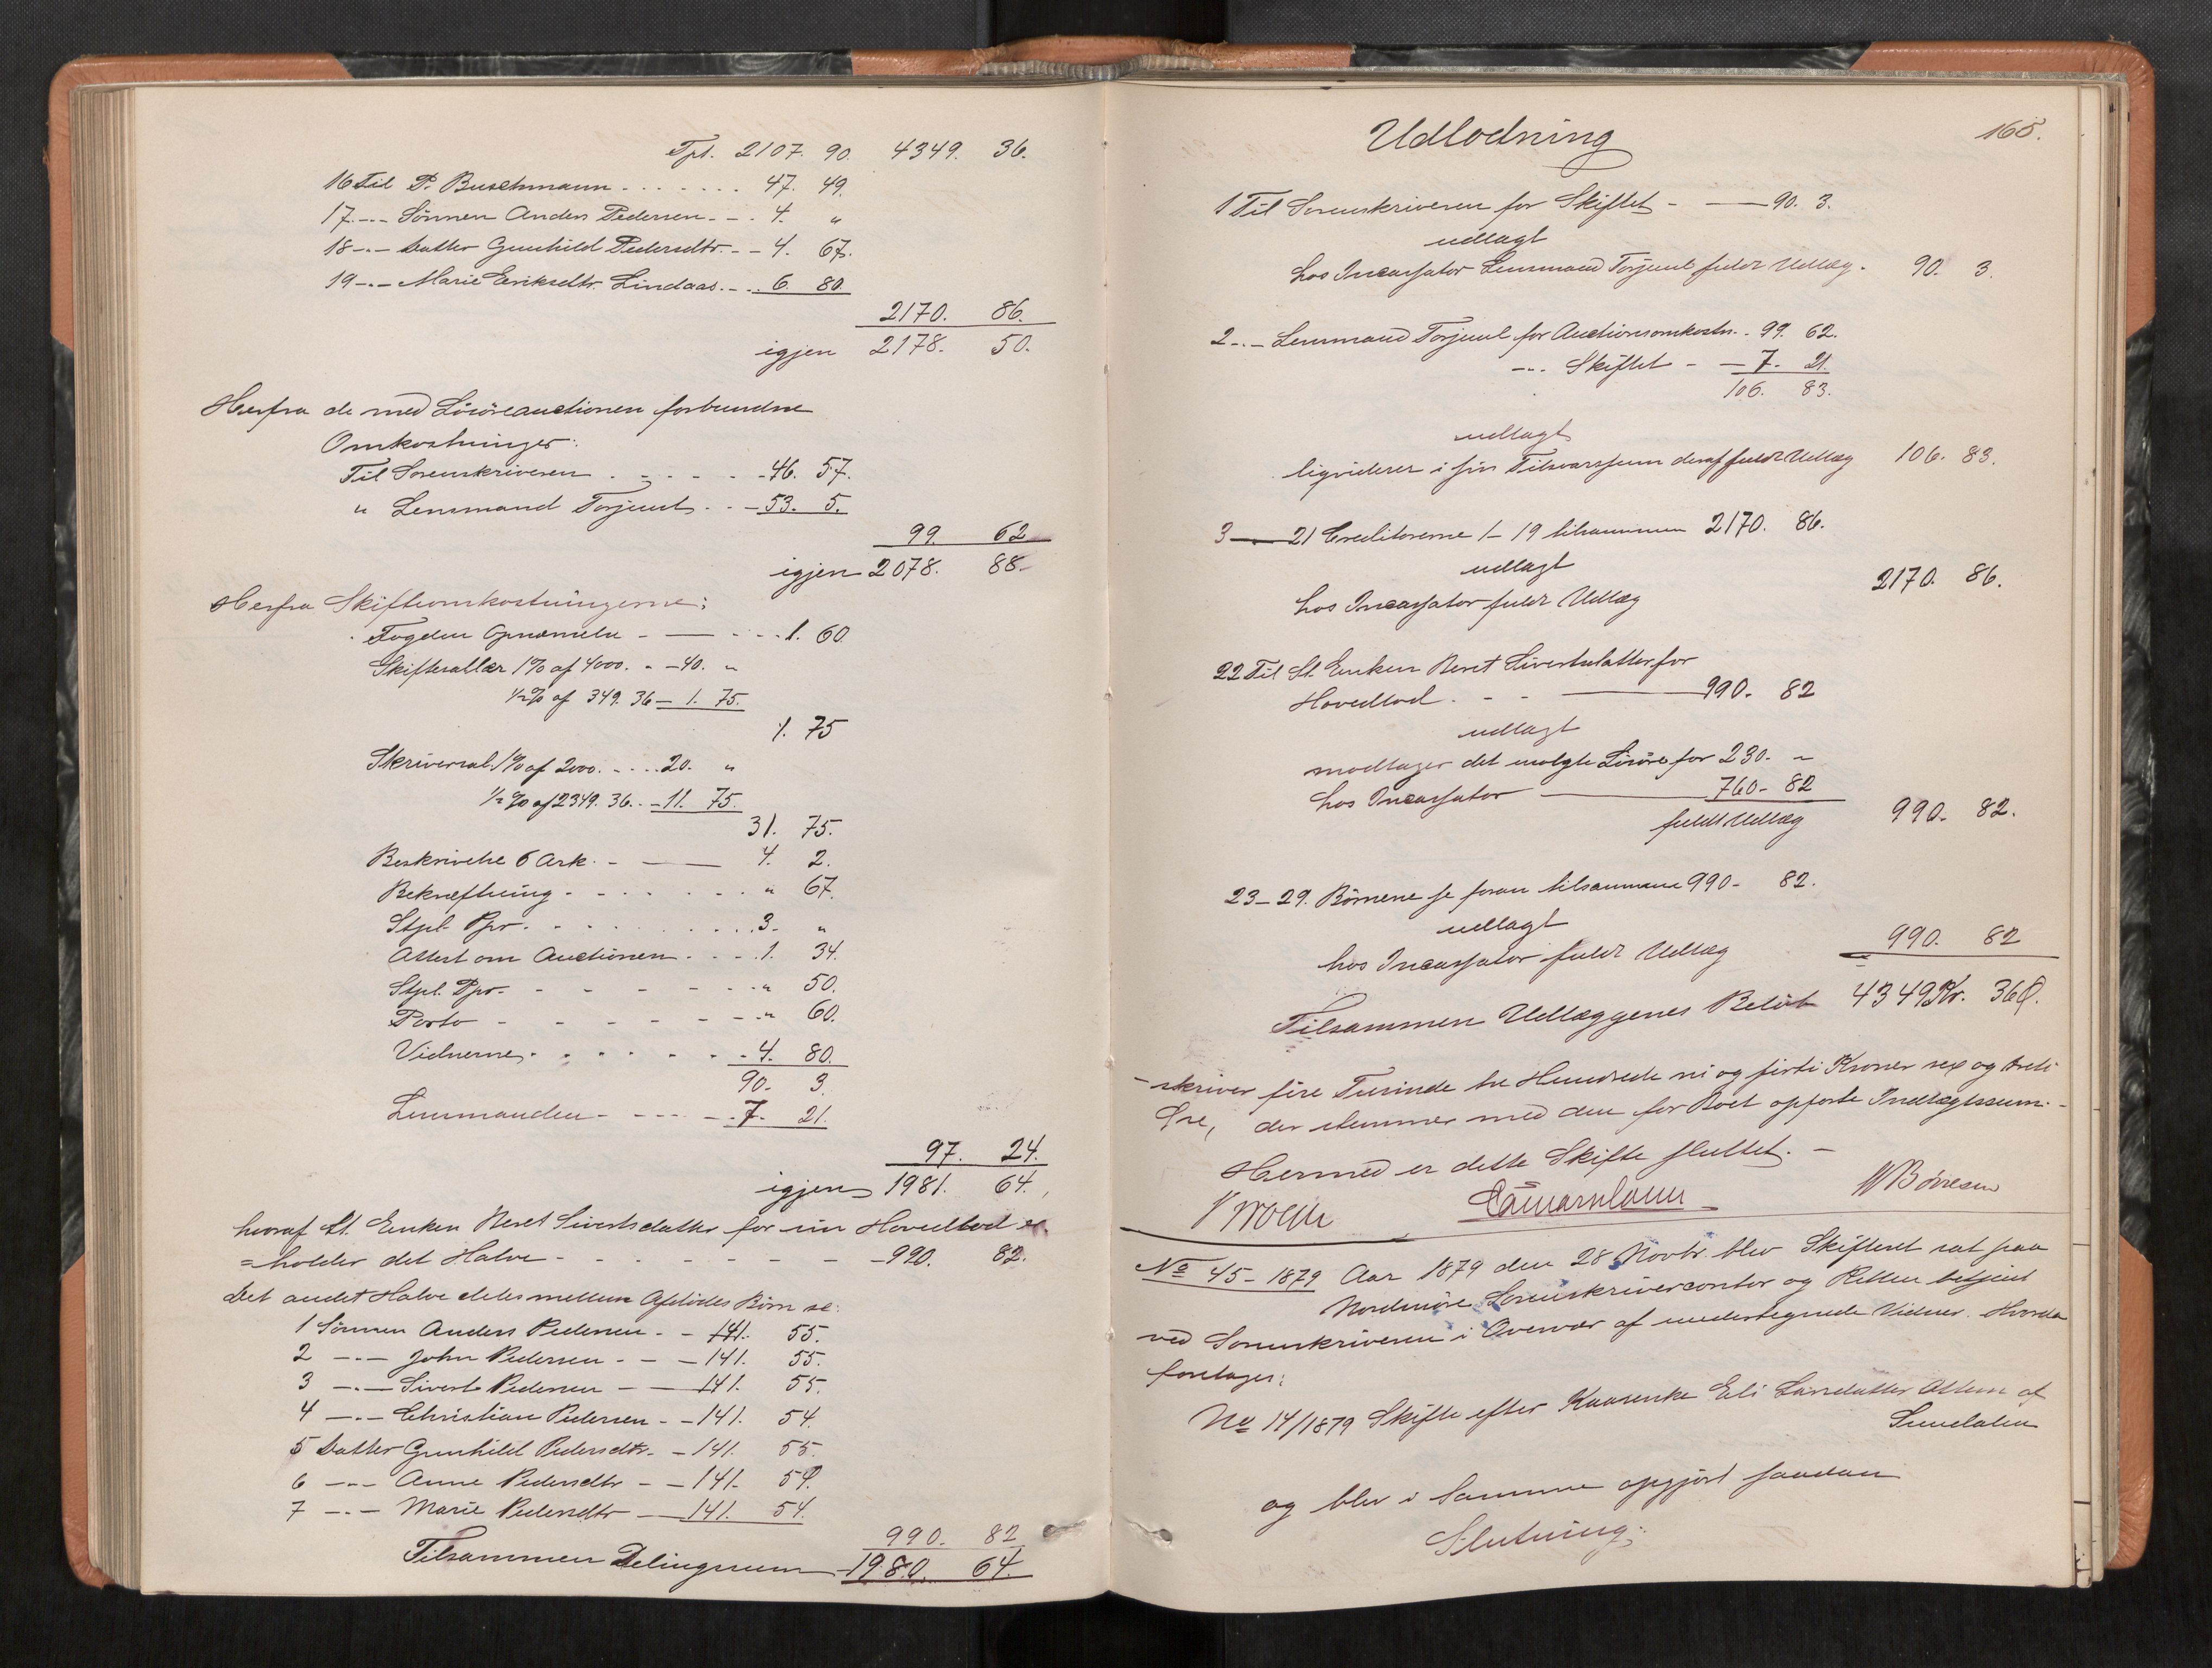 Tpt. 2107. 90. 4349. 36.
16 Til P. Buschmann . . . . . . . 47. 49.
17. -"- Sönnen Anders Pedersen - - . 4. "
18 -"- Datter Gunhild Pedersdtr. - - 4. 67.
19 -"- Marie Eriksdtr. Lindaas. - . 6. 80.
2170. 86.
igjen 2178. 50.
Herfra de med Lösöreauctionen forbundne
Omkostninger:
Til Sorenskriveren . - . - . - 46. 57.
" Lensmand Torjuul . . - 53. 5.
99. 62
igjen 2078. 88.
Herfra Skifteomkostningerne:
Fogden Opnævnelse - — - . - . 1. 60.
Skiftesallær 1% af 4000. - - 40. "
½% af 349. 36 — 1. 75.
1. 75
Skriversal. 1% af 2000. - . . . 20. "
½% af 2349. 36. . - 11. 75.
31. 75.
Beskrivelse 6 Ark. - — 4. 2.
Bekræftning - . . . . . . " 67.
Stpl. Ppr. . . . . . . . . . 3. "
Attest om Auctionen . . . . 1. 34.
Stpl. Ppr. - - - - - - . " 50.
Porto - - - - - - - " 60.
Vidnerne . . . . . . . 4. 80.
90. 3.
Lensmanden - - - - - . 7. 21.
97. 24.
igjen 1981. 64.
hvoraf St. Enken Beret Sivertsdatter for sin Hovedlod er-
=holder det Halve - - - - - - - 990. 82.
Det andet Halve deles mellem Afdödes Börn se:
1 Sönnen Anders Pedersen - - 141. 55.
2 -"- John Pedersen - - - 141. 55.
3 -"- Sivert Pedersen - - 141. 55.
4 -"- Christian Pedersen - - 141. 54.
5 Datter Gunhild Pedersdtr. - 141. 55.
6 -"- Anne Pedersdtr - - 141. 54.
7 -"- Marie Pedersdtr — 141. 54.
990. 82
Tilsammen Delingssum 1980. 64.
Udlodning
165.
1 Til Sorenskriveren for Skiftet - — 90. 3.
udlagt
hos Incassator Lensmand Torjuul fuldt Udlæg. 90. 3.
2 -"- Lensmand Torjuul for Auctionsomkostn. . 99. 62.
-"- Skiftet - — 7. 21.
106. 83.
udlagt
ligviderer i sin Tilsvarssum deraf fuldt Udlæg 106. 83.
3 — 21 Creditorerne 1 - 19 tilsammen 2170. 86.
udlagt
hos Incassator fuldt Udlæg 2170. 86.
22 Til St. Enken Beret Sivertsdatter for
Hovedlod . - - — 990. 82
udlagt
modtager det udvalgte Lösöre for 230. "
hos Incassator — 760. 82
fuldt Udlæg 990. 82.
23 - 29. Börnene se foran tilsammen 990. 82.
udlagt
hos Incassator fuldt Udlæg 990. 82
Tilsammen Udlæggenes Beløb 4349 Kr. 36 Ø.
- skriver fire Tusinde tre Hundrede ni og firti Kroner sex og treti
Øre, der stemmer med den for Boet opførte Indtægtssum. -
Hermed er dette Skifte sluttet. -
N Børresen
No 45 - 1879 Aar 1879 den 28 Novbr. blev Skifteret sat paa
Nordmöre Sorenskrivercontor og Retten betjent
ved Sorenskriveren i Overvær af undertegnede Vidner. Hvorda
foretages:
No 14/1879 Skifte efter Kaarenke Eli Larsdatter Ottem af
Sunddalen
og blev i Samme opgjört saadan
Slutning: